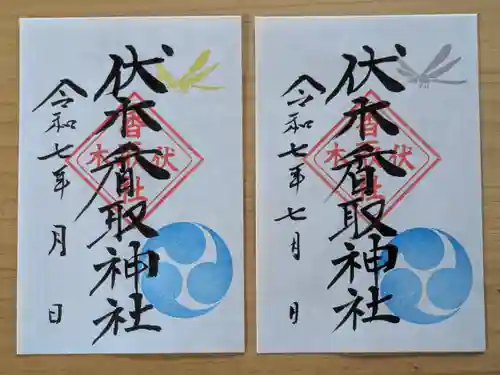 伏木香取神社
令和七年 月 日
香取
伏木
社
伏木香取神社
令和七年七月 日
香取
伏木
社